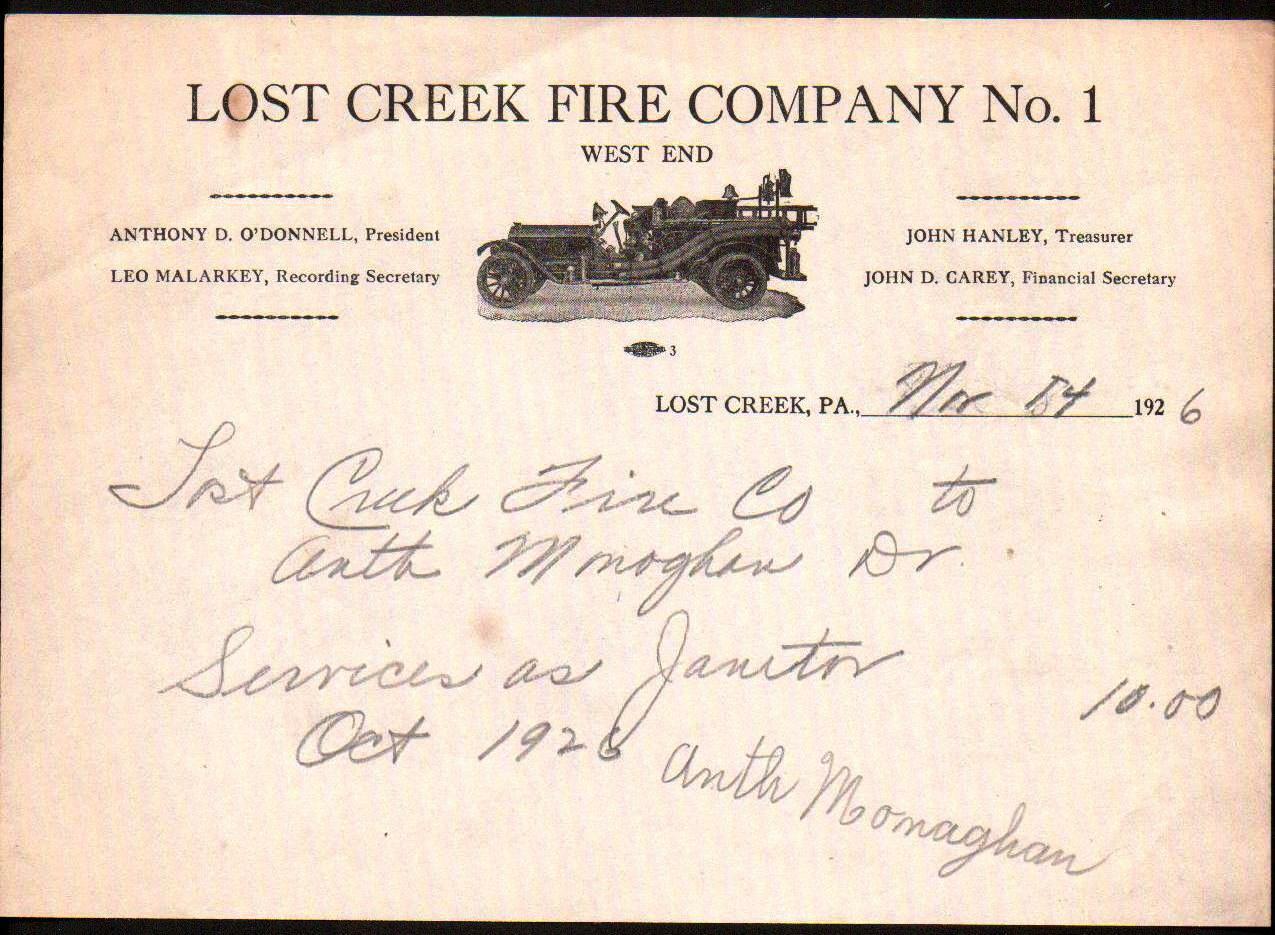 LOST CREEK FIRE COMPANY No. 1
WEST END
ANTHONY D. O'DONNELL, President
LEO MALARKEY, Recording Secretary
JOHN HANLEY, Treasurer
JOHN D. CAREY, Financial Secretary
3
LOST CREEK, PA., Nov 1926
Lost Creek Fire Co to
Anth Monoghan Dr.
Services as Janitor
10.00
Oct 1926
Anth Monaghan